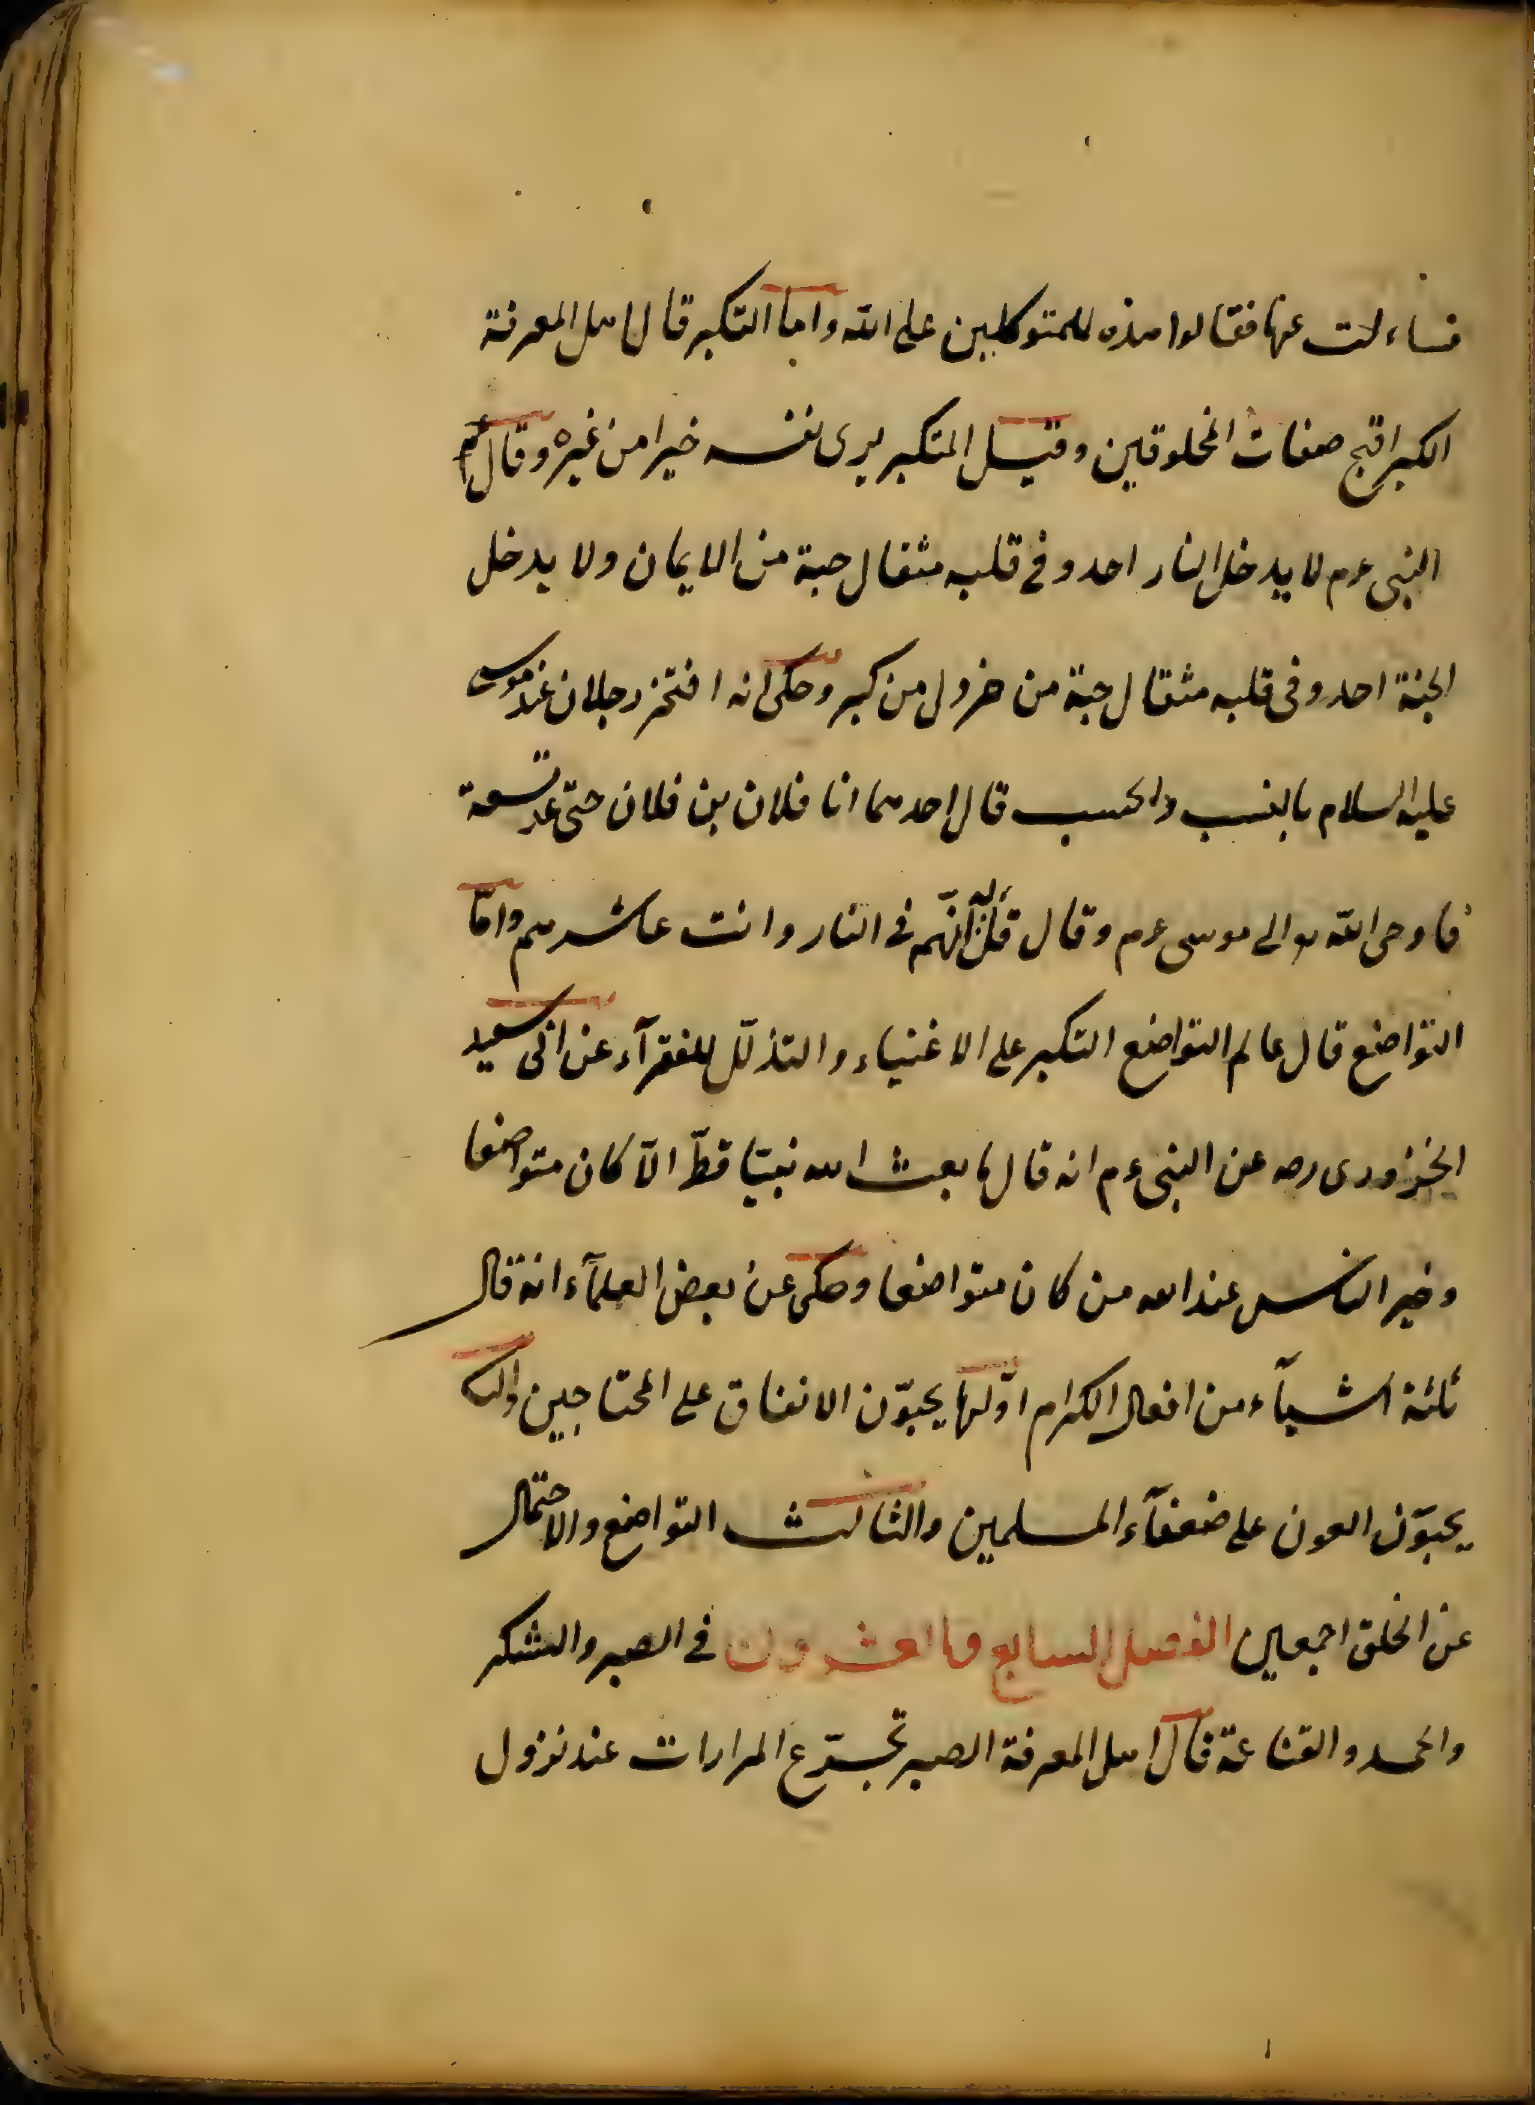 فساءلت عنها فقالوا هذه للمتوكلين على الله واما التكبر قال اهل المعرفة
الكبر اقبح صفات المخلوقين وقيل المتكبر يرى نفسه خيرا من غيره وقال
النبى عم لا يدخل النار احد وفى قلبه مثقال حبة من الايمان ولا يدخل
الجنة احد وفى قلبه مثقال حبة من خردل من كبر وحكى انه افتخر رجلان عند موسى
عليه السلام بالنسب والحسب قال احدهما انا فلان بن فلان حتى عد تسعة
فاوحى الله الى موسى عم وقال قل له انهم فى النار وانت عاشرهم واما
التواضع قال عالم التواضع التكبر على الاغنياء والتذلّل للفقرآء عن ابى سعيد
الخزورى رصه عن النبى عم انه قال ما بعث الله نبيّا قطّ الّا كان متواضعا
وخير الناس عند الله من كان متواضعا وحكى عن بعض العلمآء انه قال
ثلثة اشيآء من افعال الكرام اوّلها يحبوّن الانفاق على المحتاجين والثا
يحبوّن العون على ضعفآء المسلمين والثالث التواضع والاحتمال
عن الخلق اجمعين الفصل السابع والعشرون فى الصبر والشكر
والحمد والقناعة قال اهل المعرفة الصبر تجرّع المرارات عند نزول